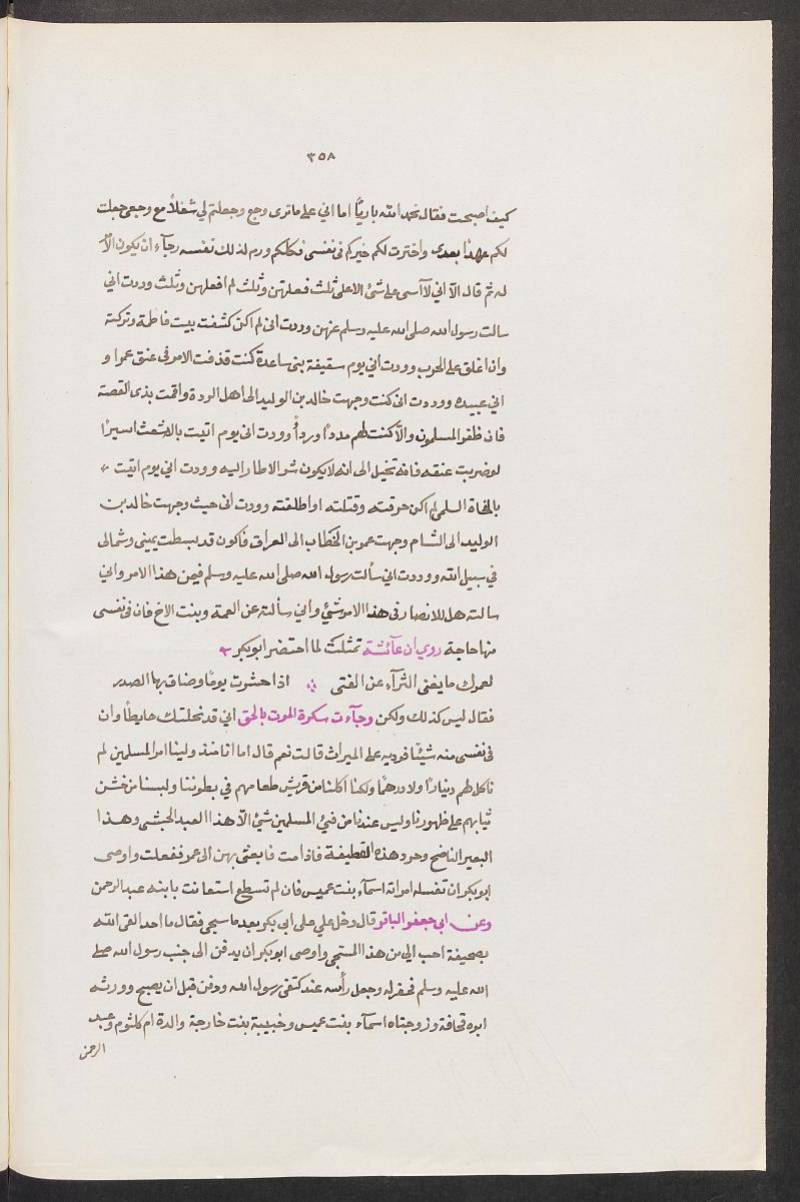 ٣٥٨
كيف اصبحت فقال بحمد الله باريًا اما اني على ما ترى وجع وجعلتم لي شغلاً مع وجعي جعلت
لكم عهدًا بعدى واخترت لكم خيركم فى نفسى فكلكم ورم لذلك نفسه رجآء ان يكون الأمر
له ثم قال الا اني لا آسى على شئ الا على ثلث فعلتهن وثلث لم افعلهن وثلث وددت اني
سالت رسول الله صلى الله عليه وسلم عنهن وددت انى لم اكن كشفت بيت فاطمة وتركته
وان اغلق على الحرب ووددت اني يوم سقيفة بنى ساعدة كنت قذفت الامر فى عنق عمر او
ابي عبيده ووددت انى كنت وجهت خالد بن الوليد الى اهل الردة واقمت بذى القصة
فان ظفر المسلمون والّا كنت لهم مددًا وردأً ووردت انى يوم اتيت بالاشعث اسيرًا
لو ضربت عنقه فانه تخيل الى انه لا يكون شر الا طار اليه ووددت اني يوم اتيت
بالفجاة السلمي لم اكن حرقته وقتلته او اطلقته ووردت انى حيث وجهت خالد بن
الوليد الى الشام وجهت عمر بن الخطاب الى العراق فاكون قد بسطت يمينى وشمالى
في سبيل الله ووددت اني سألت رسول الله صلى الله عليه وسلم فيمن هذا الامر واني
سالته هل للانصار فى هذا الامر شئي واني سألته عن العمة وبنت الاخ فان فى نفسى
منها حاجة روي ان عآئشة تمثلت لما احتضر ابو بكر
لعمرك ما يغنى الثرآء عن الفتى اذا حشرت يومًا وضاق بها الصدر
فقال ليس كذلك ولكن وجآءت سكرة الموت بالحق اني قد نحلتك حايطًا وان
فى نفسى منه شيئًا فرديه على الميراث قالت نعم قال اما انا منذ ولينا امر المسلمين لم
ناكل لهم دينارًا ولا درهمًا ولكنا اكلنا من قريش طعامهم في بطوننا ولبسنا من خشن
ثيابهم على ظهورنا وليس عندنا من فئ المسلمين شئ الّا هذا العبد الحبشى وهذا
البعير الناضح وجرد هذه القطيفة فاذا مت فابعثى بهن الى عمر ففعلت واوصى
ابو بكر ان تغسله امراته اسمآء بنت عميس فان لم تسطع استعانت بابنه عبد الرحمن
وعن ابي جعفر الباقر قال دخل علي على ابي بكر بعد ما سجي فقال ما احد القى الله
بصحيفة احب الي من هذا المسجى واوصى ابو بكر ان يدفن الى جنب رسول الله صلى
الله عليه وسلم فحفر له وجعل رأسه عند كتفى رسول الله ودفن قبل ان يصبح وورثه
ابوه قحافة وزوجتاه اسمآء بنت عميس وحبيبة بنت خارجة والدة ام كلثوم وعبد
الرحمن